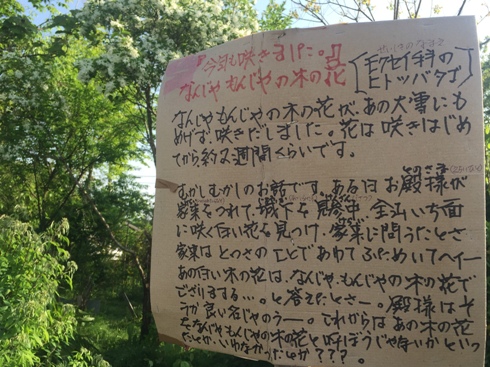 今年も咲きました。
なんじゃもんじゃの木の花
モクセイ科の
ヒトツバタゴ
なんじゃもんじゃの木の花が、あの大雪にも
めげず、咲きだしました。花は咲きはじめ
てから約2週間くらいです。
むかしむかしのお話です。ある日お殿様が
家来をつれて、城下を
に咲く白い花を見つけ、家来に問うたとさ
家来はとっさのことであわてふためいてヘイー
あの白い木の花は、なんじゃもんじゃの木の花で
ござりまする…。と答えたとさー。殿様はそ
うか良い名じゃのうー。これからはあの木の花
をなんじゃもんじゃの木の花と呼ぼうじゃないかといっ
たとか、いわなかったとか???。